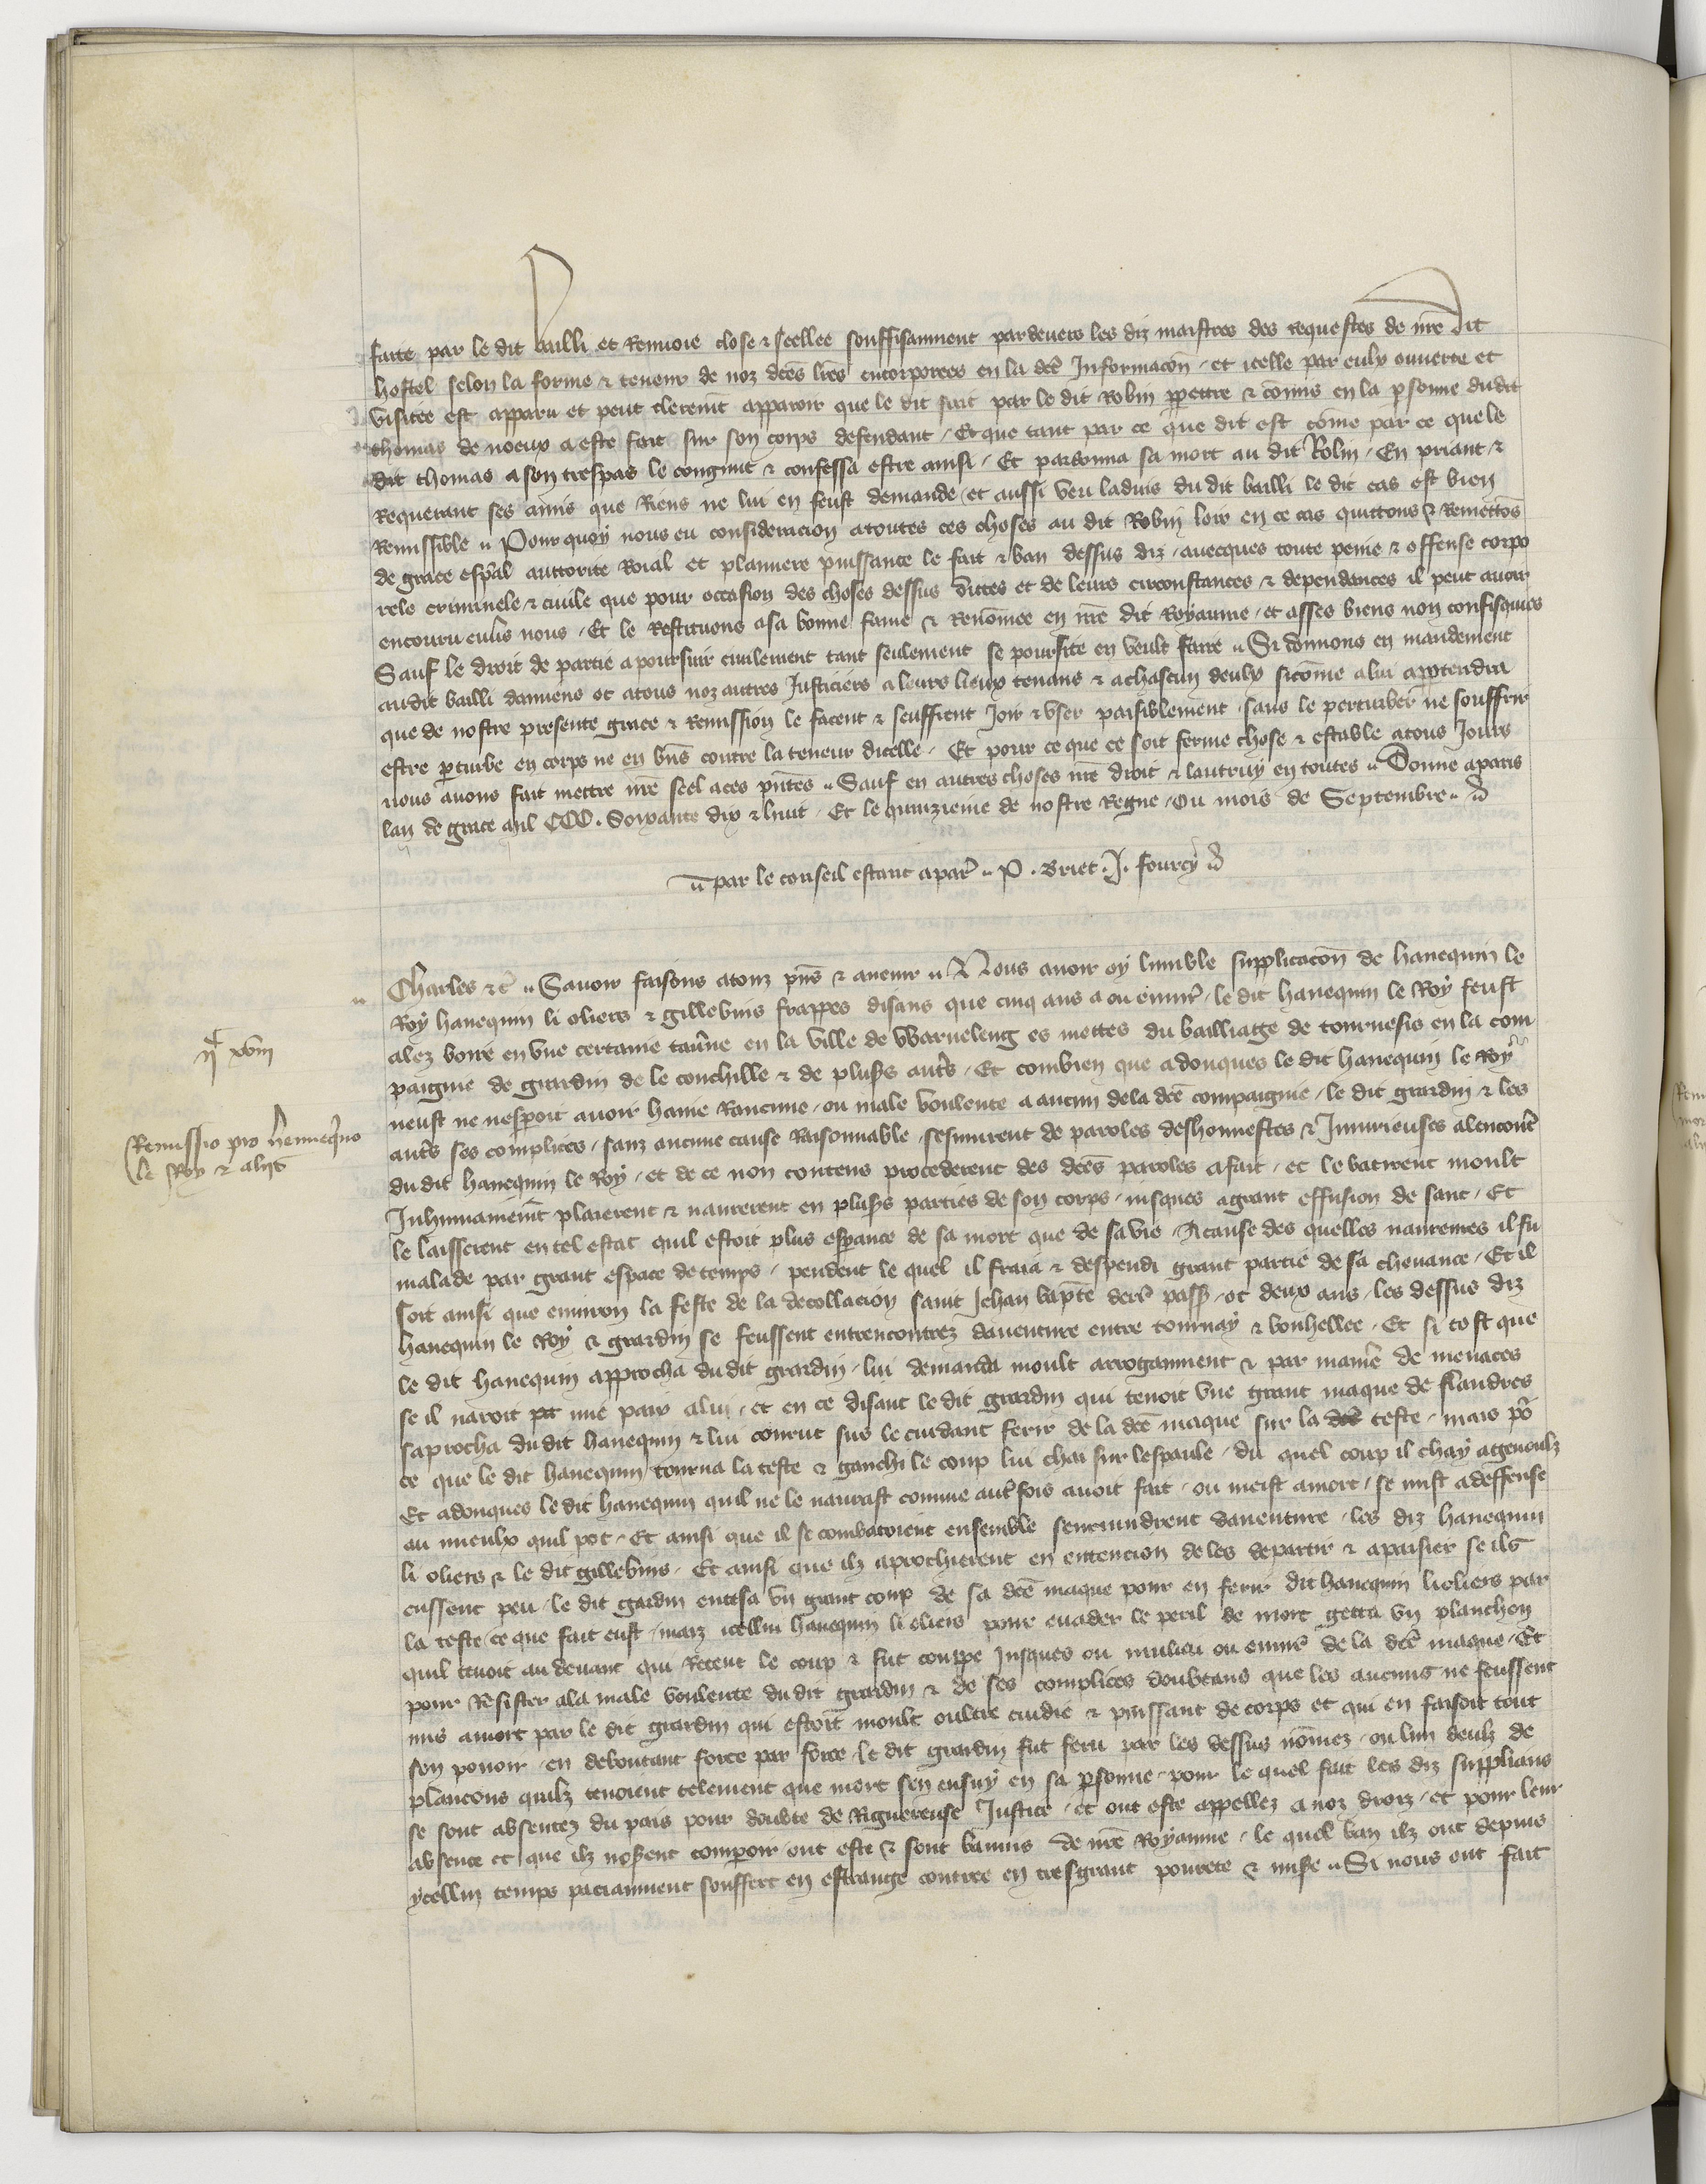 faite par le dit bailli et Renvoie close & seellee souffisanment pardevers les diz maistres des requestes de nr̃e dit
hostel selon la forme & teneur de noz dc̃es lr̃es encorporees en la dcẽ Informacõn / et icelle par eulx ouverte et
visitee est apparu et peut clerem̃t apparoir que le dit fait par le dit Robin ppetre & cõmis en la psonne dudit
thomas de noeux a este fait sur son corps defendant / Et que tant par ce que dit est cõme par ce que le
dit thomas a son trespas le congnut & confessa estre ainsi / Et pardonna sa mort au dit Robin / En priant &
Requerant ses amis que Riens ne lui en feust demande / et aussi veu ladvis du dit bailli le dit cas est bien
Remissible \\ Pour quoy nous eu consideracion a toutes ces choses au dit Robin loir en ce cas quittons & Remettõs
de grace esp̃al auttorite Roial et planniere puissance le fait & ban dessus diz / avecques toute peine & offense corpo
rele criminele & civile que pour occasion des choses dessus dictes et de leurs circonstances & dependances il peut avoir
encouru envers nous / Et le Restituons a sa bonne fame & Renõmee en nr̃e dit Royaume / et asses biens non confisquies
Sauf le droit de partie a poursuir civilement tant seulement se poursite en veult faire \\ Si donnons en mandement
audit bailli damiens et atous noz autres Justiciers a leurs lieux tenans & achascun deulx sicõme a lui appartendra
que de nostre presente grace & Remission le facent & seuffrent Joir & user paisiblement / sans le perturber ne souffrir
estre pturbe en corps ne en biẽs contre la teneur dicelle / Et pour ce que ce soit ferme chose & estable atous Jours
nous avons fait mettre nr̃e seel aces pñtes \\ Sauf en autres choses nr̃e droit & lautruy en toutes \\ Donne a paris
lan de grace mil CCC. Soixante dix & huit / Et le quinzieme de nostre Regne / Ou mois de Septembre \\
par le conseil estant a par̃ \\ P. Briet . J. fourcy
Charles &c̃ \\ Savoir faisons atouz pñs & avenir \\ Nous avoir oy lumble supplicacõn de hanequin le
Roy hanequin li oliers & gillebins frappes disans que cinq ans a ou envir̃ / le dit hanequin le Roy feust
alez boire en une certaine tav̾ne en la ville de Warneleng es mettes du bailliage de tournesis en la com
paignie de grardin de le couchille & de plus̃s autr̃s / Et combien que adonques le dit hanequin le Roy
neust ne nesperoit avoir haine Rancune / ou male voulente a aucun dela dc̃e compaignie / le dit grardin & les
autr̃s ses complices / sanz aucune cause Raisonnable / sesmurent de paroles deshonnestes & Iniurieuses alencontr̃
du dit hanequin le Roy / et de ce non contens procederent des dc̃es paroles a fait / et le batirent moult
Inhumainem̃t plaierent & navrerent en plus̃s parties de son corps / iusques a grant effusion de sanc / Et
le laisserent en tel estat quil estoit plus esperance de sa mort que de sa vie / A cause des quelles navreures il fu
malade par grant espace de temps / pendent le quel il fraia & despendi grant partie de sa chevance / Et il
soit ainsi que environ la feste de la decollacion saint Jehan bapte derr̃ pass̃ / ot deux ans / les dessus diz
hanequin le Roy & grardin se feussent entrencontrez daventure entre tournay & bonhellee / Et si tost que
le dit hanequin approcha du dit grardin / lui demanda moult arroganment & par manie de menaces
se il naroit pat mie paix a lui / et en ce disant le dit grardin qui tenoit une grant maque de flandres
saprocha du dit hanequin & lui courut sus le cuidant ferir de la dc̃e maque sur la dc̃e teste / mais po
ce que le dit hanequin tourna la teste & ganchi le coup lui chai sur lespaule / du quel coup il chay agenoulz
Et adonques le dit hanequin quil ne le navrast comme autrefois avoit fait / ou meist amort / se mist a deffense
au mieulx quil pot / Et ainsi que il se combatoient ensemble sencuindrent daventure / les diz hanequin
li oliers & le dit gillebins / Et ainsi que ilz aprochierent en entencion de les departir & apaisier se ilz
eussent peu / le dit grardin entesa un grant coup de sa dc̃e maque pour en ferir dit hanequin li oliers par
la teste / ce que fait eust / maiz icellui hanequin li oliers pour evader le peril de mort getta un planchon
quil tenoit au devant qui Receut le coup & fut couppe Jusques ou milieu ou envir̃ de la dc̃e maque / Et
pour Resister ala male voulente du dit grardin & de ses complices doubtans que les aucuns ne feussent
mis amort par le dit grardin qui estoit moult oultre cuidie & puissant de corps et qui en faisoit tout
son povoir / en deboutant force par force / le dit grardin fut feru par les dessus nõmez / ou lun deulz de
plancons quilz tenoient telement que mort sen ensuy en sa psonne / pour le quel fait les diz supplians
se sont absentez du pais pour doubte de Riguereuse Justice / et ont este appellez a noz droiz / et pour leur
absence et que ilz nosent comparoir ont este & sont bannis de nr̃e Royaume / le quel ban ilz ont depuis
ycellui temps pacianment souffert en estrange contree en tresgrant povrete & misere \\ Si nous ont fait
xviii
Remissio pro hennequino
le Roy & aliis